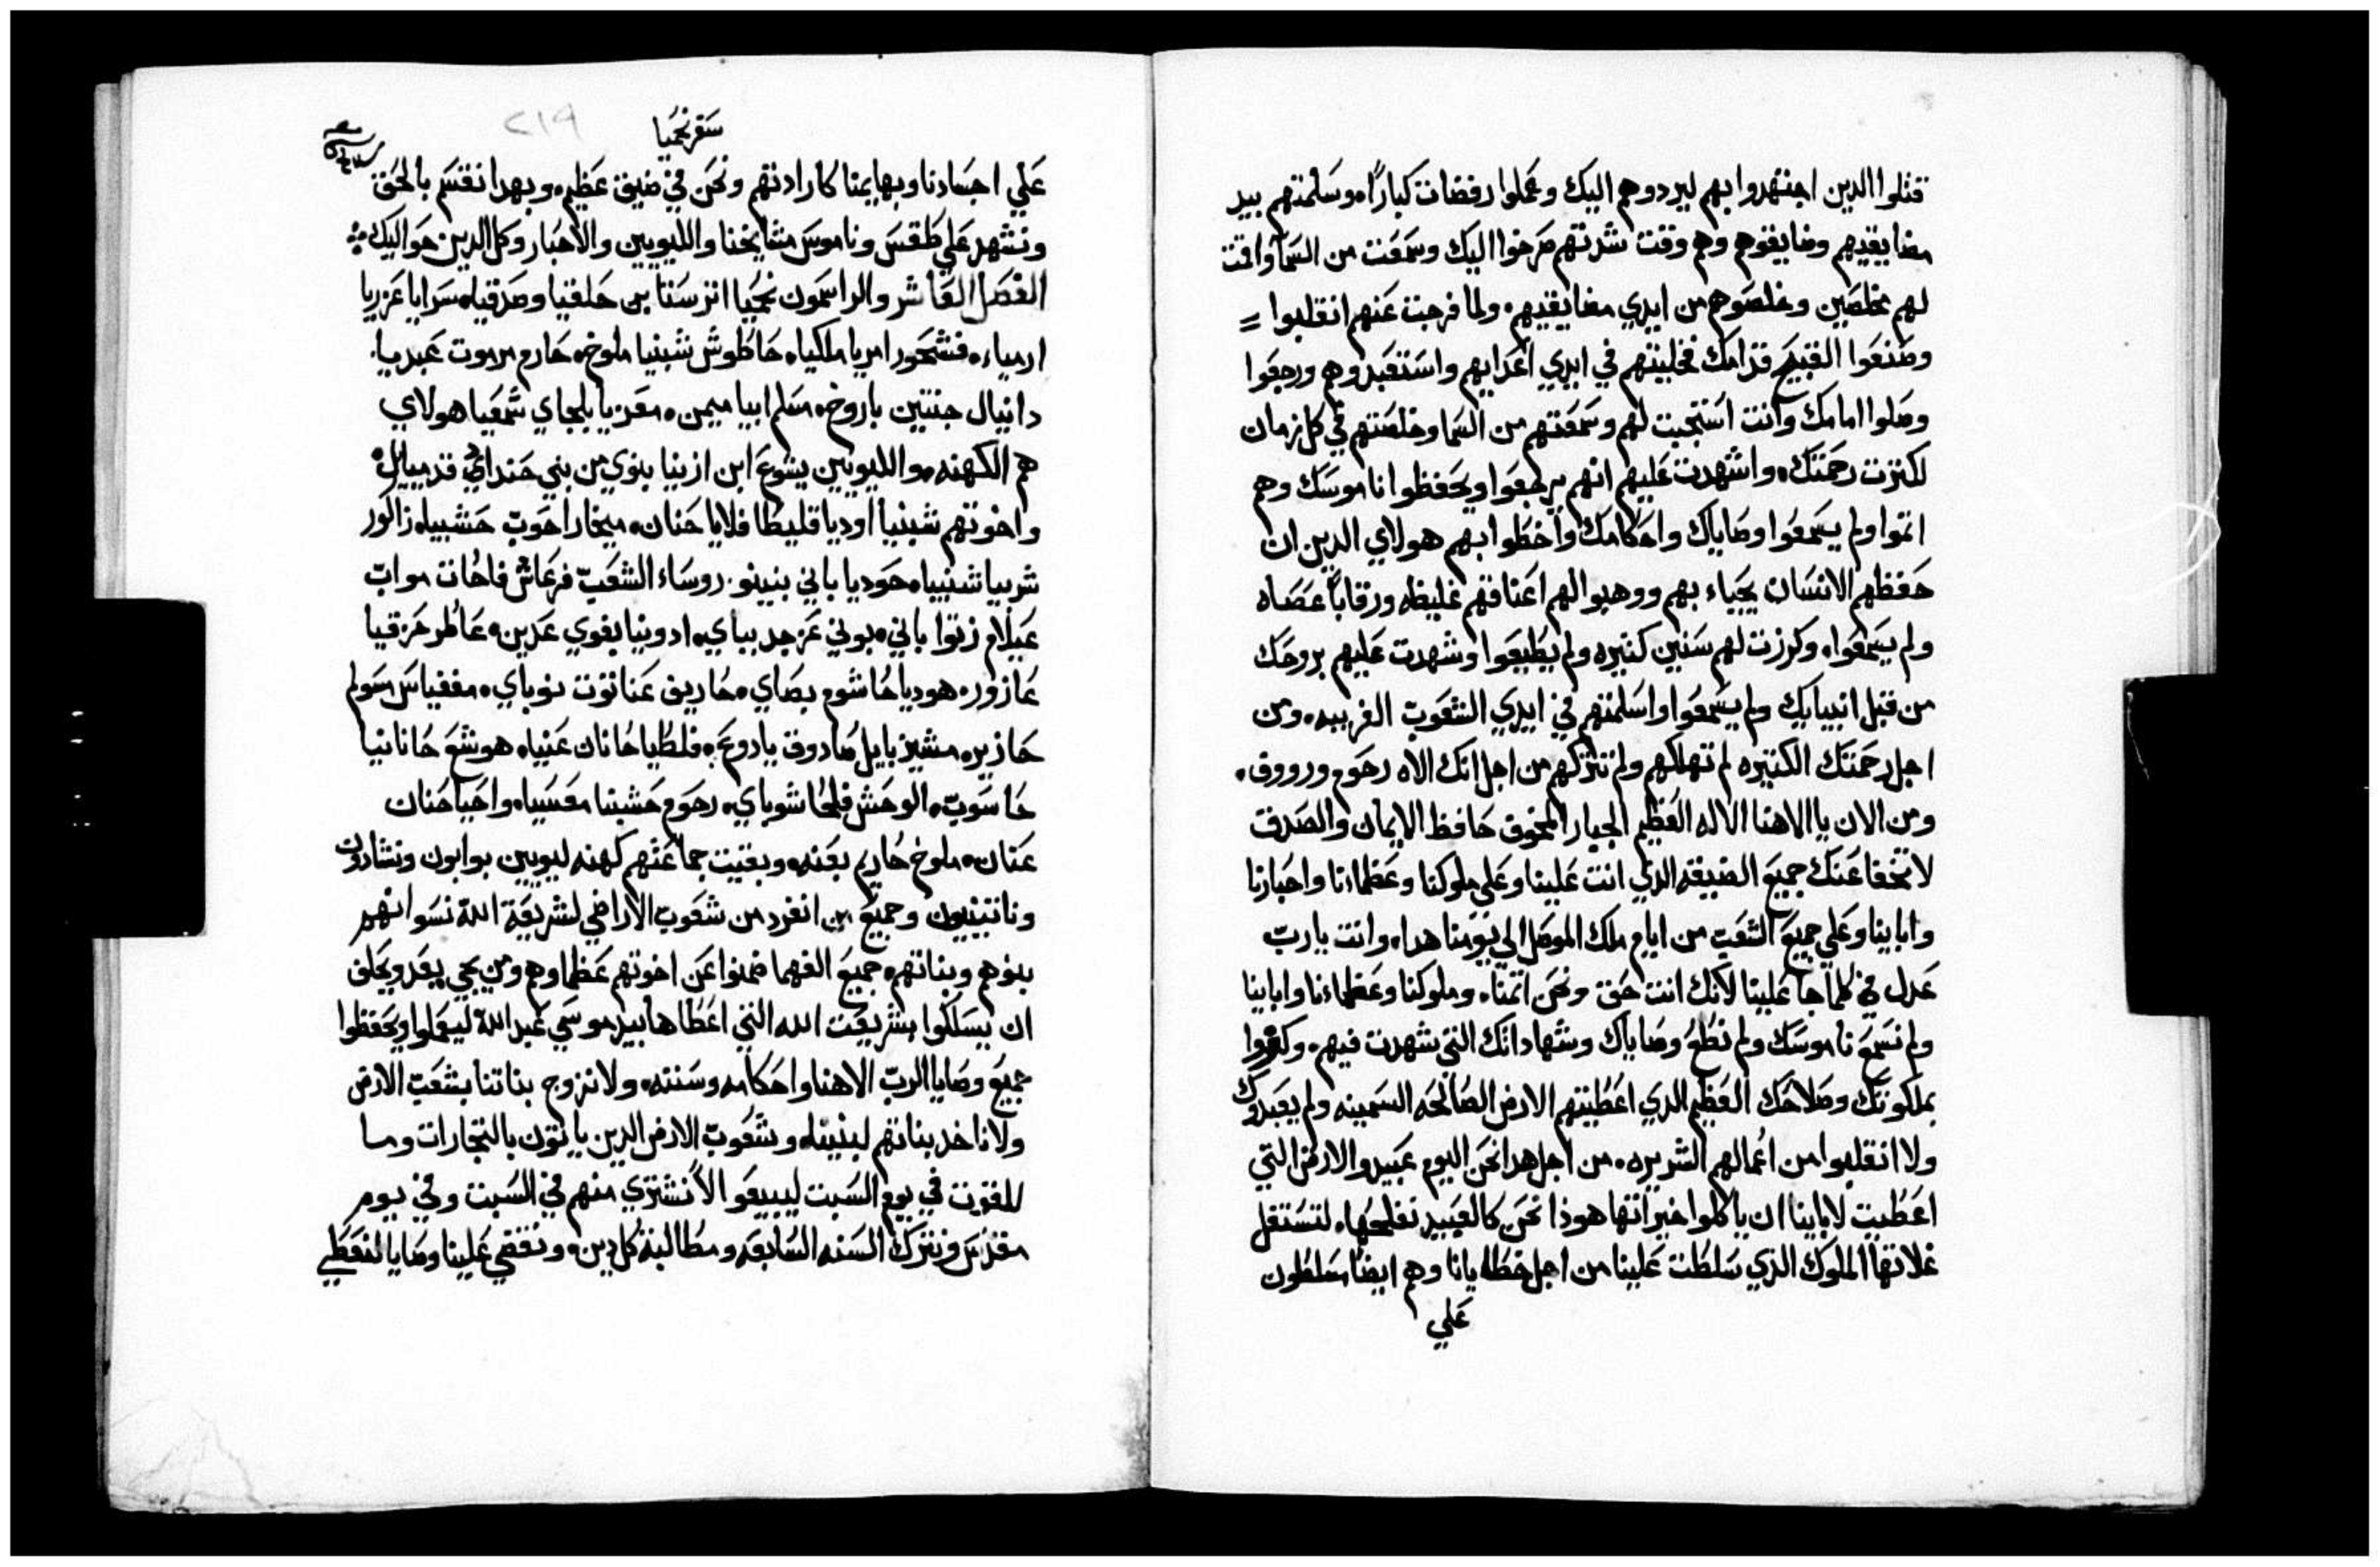 قتلوا الدين اجتهدوا بهم ليردوهم اليك وعملوا رفضات كباراً وسلمتهم بيد
مضايقيهم وضايقوهم وهم وقت شدتهم صرخوا اليك وسمعت من السما واقمت
لهم مخلصين وخلصوهم من ايدي مضايقيهم ولما فرجت عنهم انقلبوا
وصنعوا القبيح قدامك فخليتهم في ايدي اعدايهم واستعبدوهم ورجعوا
وصلوا امامك وانت استجبت لهم وسمعتهم من السما وخلصتهم في كل زمان
لكترت رحمتك واشهدت عليهم انهم يرجعوا ويحفظوا ناموسك وهم
اتموا ولم يسمعوا وصاياك واحكامك واخطوا بهم هولاي الدين ان
حفظهم الانسان يحياء بهم ووهبوا لهم اعناقهم غليظه ورقاباً عصاه
ولم يسمعوا وكرزت لهم سنين كتيره ولم يطيعوا وشهدت عليهم بروحك
من قبل انبيايك ولم يسمعوا واسلمتهم في ايدي الشعوب الغريبه ومن
اجل رحمتك الكتيره لم تهلكهم ولم تتركهم من اجل انك الاه رحوم ورووف
ومن الان يا الاهنا الاله العظيم الجبار المخوف حافظ الايمان والصدق
لا تخفا عنك جميع الضيقه الدي اتت علينا وعلي ملوكنا وعظماءنا واحبارنا
وابابينا وعلي جميع الشعب من ايام ملك الموصل الي يومنا هدا وانت يارب
عدل في كلما جا علينا لانك انت حق ونحن اتمنا وملوكنا وعظماءنا وابابينا
ولم نسمع ناموسك ولم نطع وصاياك وشهاداتك التي شهدت فيهم وكفروا
بملكوتك وصلاحك العظيم الدي اعطيتهم الارض الصالحه السمينه ولم يعبدوك
ولا انقلبوا من اعمالهم الشريره من اجل هدا نحن اليوم عبيد والارض التي
اعطيت لابابينا ان ياكلوا خيراتها هودا نحن كالعبيد نفلحها لتستغل
غلاتها الملوك الدي سلطت علينا من اجل خطايانا وهم ايضا مسلطون
علي
سفر نحميا
٢١٩
علي اجسادنا وبهايمنا كارادتهم ونحن في ضيق عظيم وبهدا نقسم بالحق
ونشهد علي طقس وناموس مشايخنا والليويين والاحبار وكل الدين حواليك
الفصل العاشر والراسمون نحميا اترسنتا بن حلقيا وصدقياه سرايا عزريا
ارمياء فشحور امريا ملكياه حاطوش شبنيا ملوخ حارم مرموت عبديا
دانيال جنتين باروخ مسلم ابيا ميمن معزيا بلجاي شمعيا هولاي
هم الكهنه والليويين يشوع ابن ازنيا بنوي من بني حنداي قدمييال
واخوتهم شبنيا اوديا قليطا فلايا حنان ميخا راحوب حشبياه زاكور
شربيا شبنياه حوديا باني بنينو روساء الشعب فرعاش فاحات مواب
عيلام زتوا باني بوني عزجد ببايه ادونيا بغوي عدين عاطر حزقيا
عازور هوديا حاشوم بصاي حاريف عناتوت نوباي مغفياس مسولم
حازير مشيزبايل صادوق يادوع فلطيا حانان عنياه هوشع حانانيا
حاسوب الوحش فلحا شوباي رحوم حشبنا معسياه واحيا حنان
عنان ملوخ حاريم بعنه وبقيت جماعتهم كهنه ليويين بوابون ونشادون
وناتينيون وجميع من انفرد من شعوب الاراضي لشريعة الله نسوانهم
بنوهم وبناتهم جميع الفهما ضمنوا عن اخوتهم عظماوهم ومن يجي بعد ويحلف
ان يسلكوا بشريعت الله التي اعطاها بيد موسي عبد الله ليعملوا ويحفظوا
جميع وصايا الرب الاهنا واحكامه وسننه ولا نزوج بناتنا بشعب الارض
ولا ناخد بناتهم لبنيناه وشعوب الارض الدين ياتون بالتجارات وما
للقوت في يوم السبت ليبيعوا لا نشتري منهم في السبت وفي يوم
مقدس ونترك السنه السابعه ومطالبة كل دين ونقضي علينا وصايا لنعطي